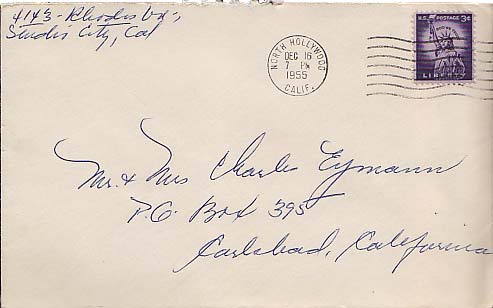 4143 - Rhodes
Studio City, Cal
NORTH HOLLYWOOD
DEC 16
7 PM
1955
CALIF.
U.S. POSTAGE 3¢
LIBERTY
Mr. & Mrs Charles Eymann
P.O. Box 395
Carlsbad, California